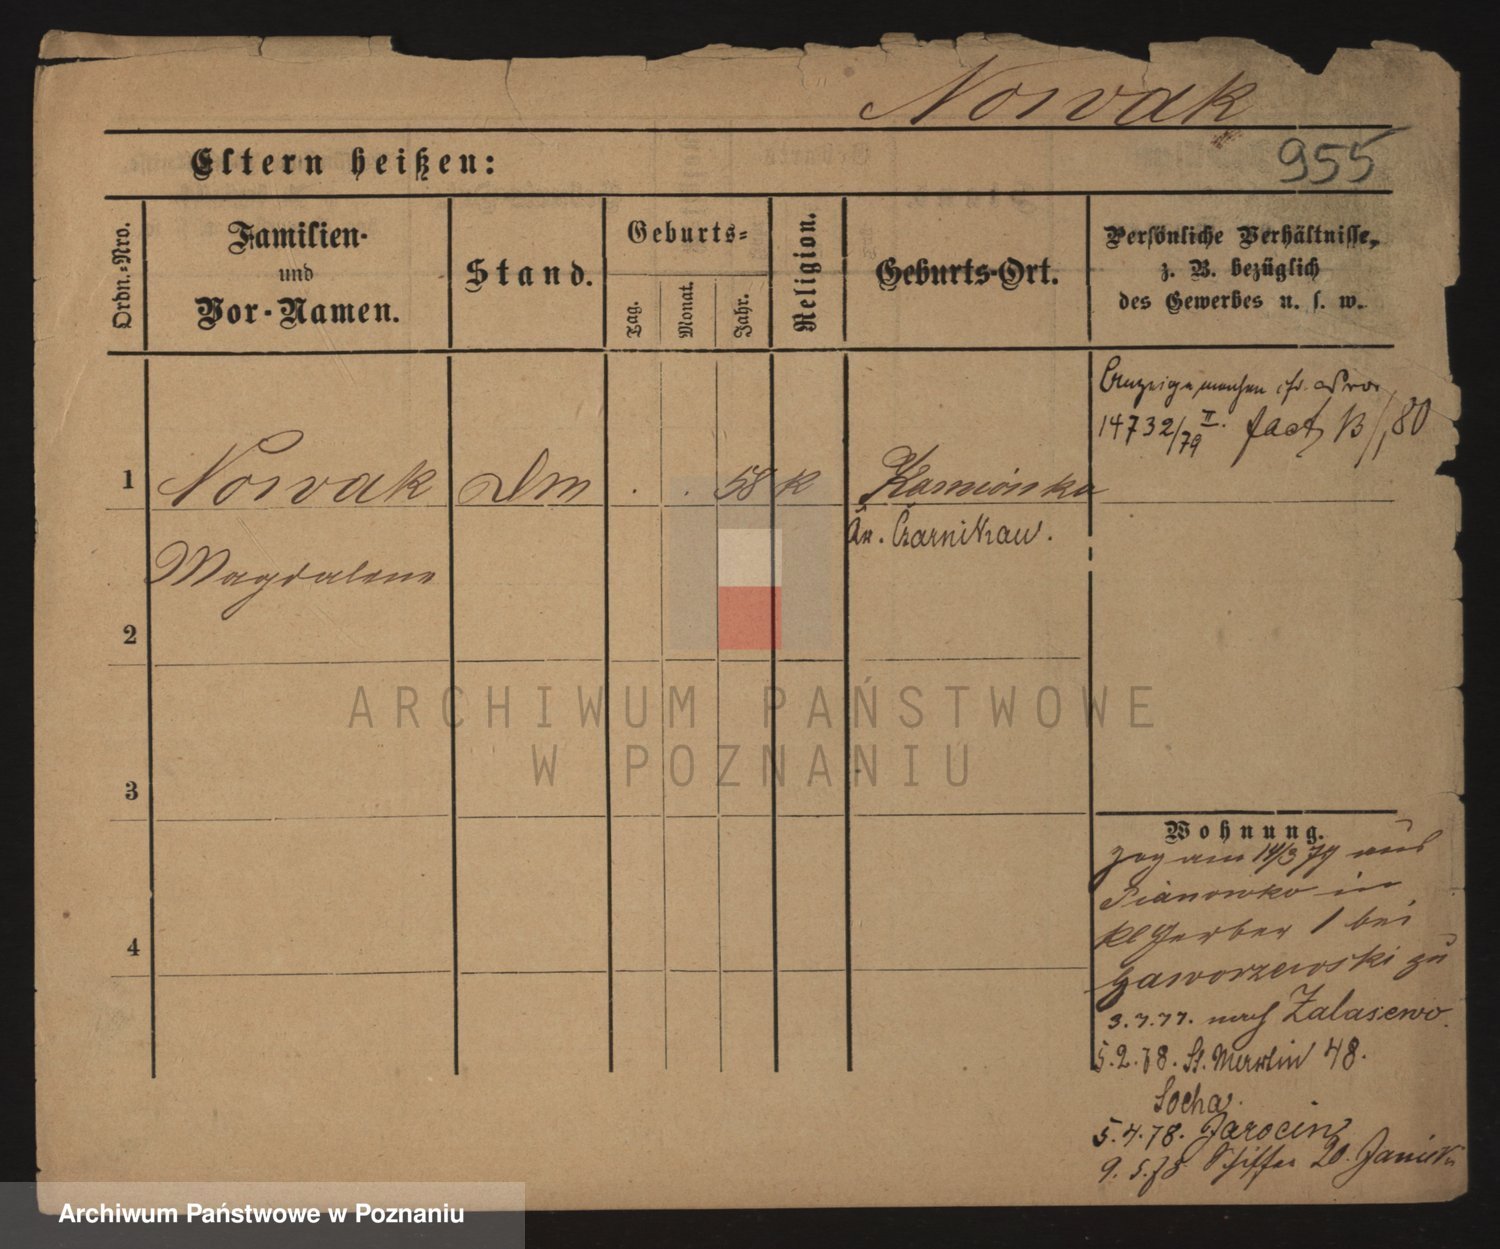 Nowak
955
Eltern heißen:
Ordn.-Nro.
Familien-
und
Vor-Namen.
Stand.
Geburts-
Tag.
Monat.
Jahr.
Religion.
Geburts-Ort.
Persönliche Verhältnisse,
z. B. bezüglich
des Gewerbes u. s. w.
14732/79 II.
1 Nowak Dm . . 58 K Kamionka
Kr. Czarnikau.
Magdalene
2
3
4
Wohnung.
zog am 14/3 77 aus
Pianowko in
Kl Gerber 1 bei
Gaworzewski zu
3.7.77. nach Zalasewo.
5.2.78. St. Martin 48.
Socha.
5.4.78. Jarocin
9.5.78 Schiffer 20. Janicki
ARCHIWUM PAŃSTWOWE
W POZNANIU
Archiwum Państwowe w Poznaniu